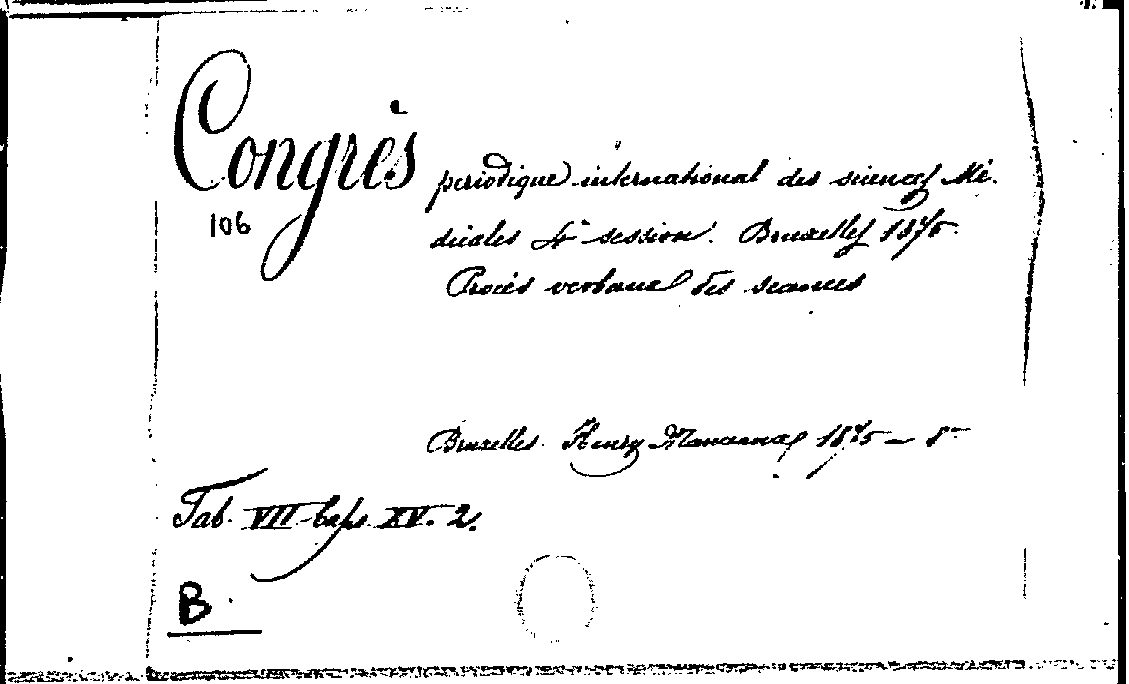 Congrès periodique international des sciences Mé-
106
dicales 4e session. Bruxelles 1875.
Procès verbaux des séances
Bruxelles. Henry Manceaux 1875 – 8°
Tab. VII caps XV. 2.
B.